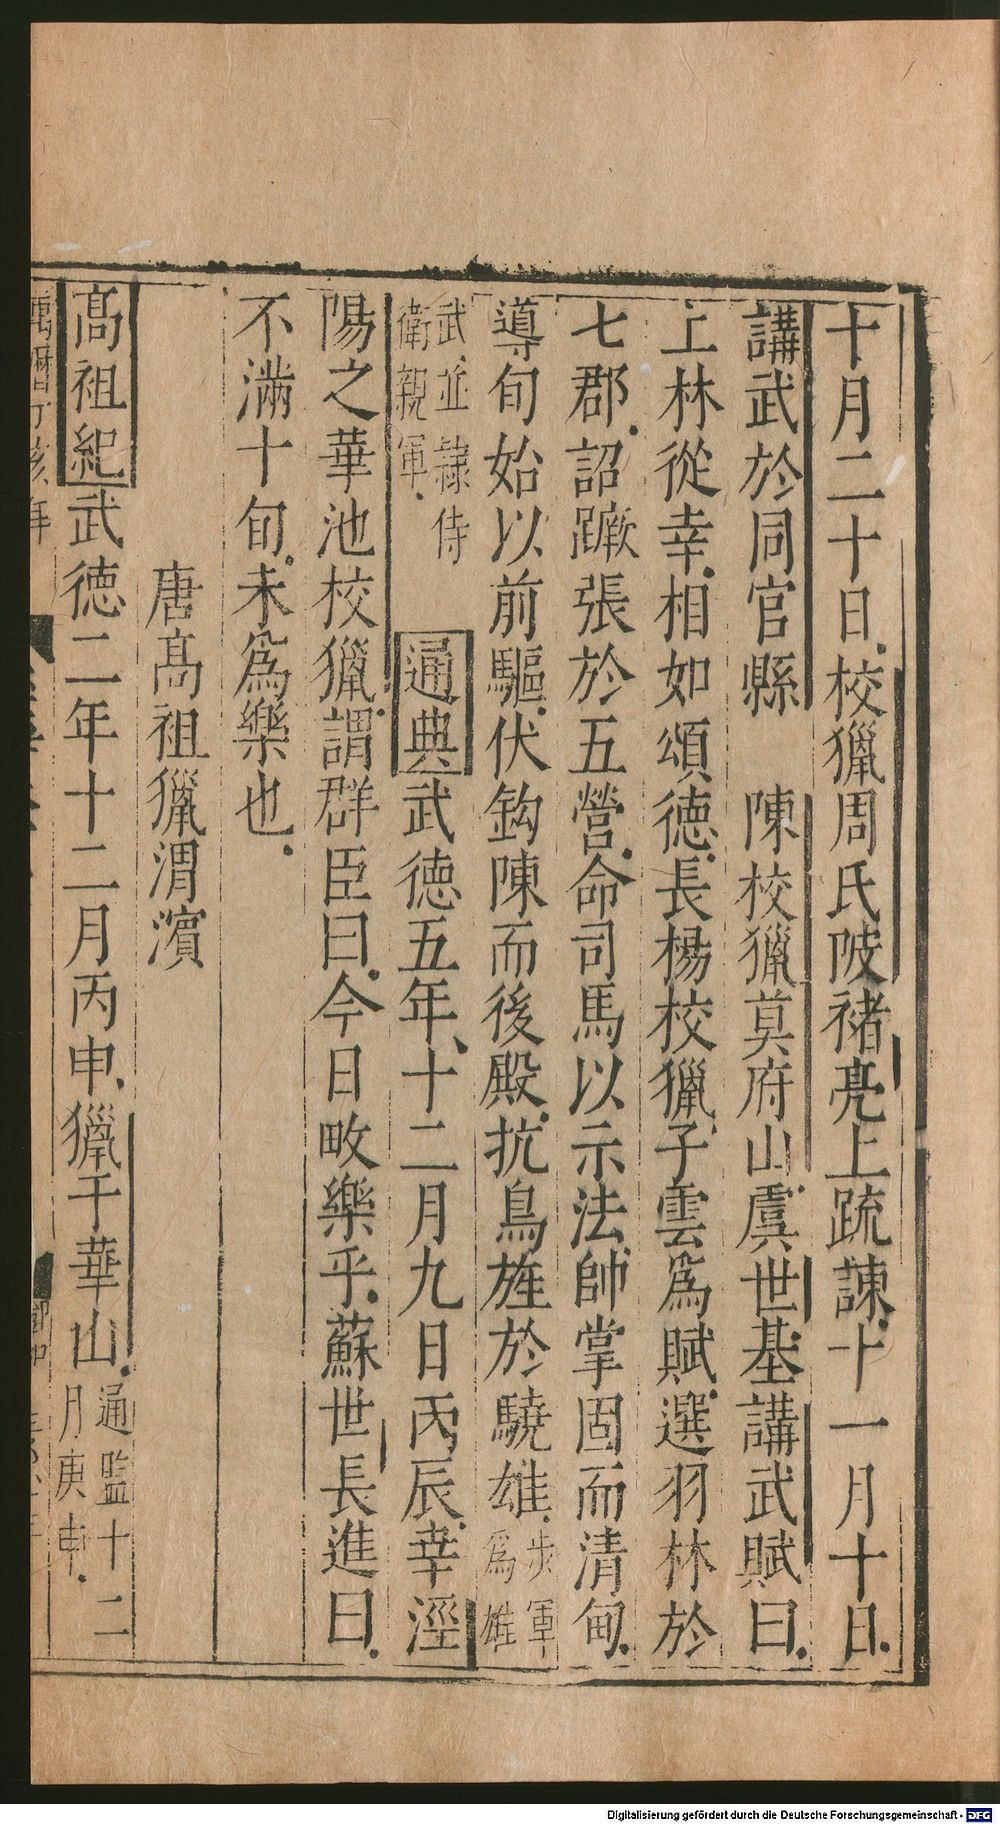 十月二十日校獵周氏陂褚亮上䟽諫十一月十日
講武於同官縣　陳校獵莫府山虞世基講武賦曰
上林從幸相如頌德長楊校獵子雲爲賦選羽林於
七郡詔蹶張於五營命司馬以示法帥掌固而清甸
導旬始以前驅伏鈎陳而後殿抗鳥旌於驍雄步軍爲雄
武並隷侍衛親軍　通典武德五年十二月九日丙辰幸涇
陽之華池校獵謂群臣曰今日畋樂乎蘇世長進曰
不滿十旬未爲樂也
唐髙祖獵渭濱
髙祖紀武德二年十二月丙申獵于華山通監十二月庚申
萬曆丁亥年
Digitalisierung gefördert durch die Deutsche Forschungsgemeinschaft - DFG